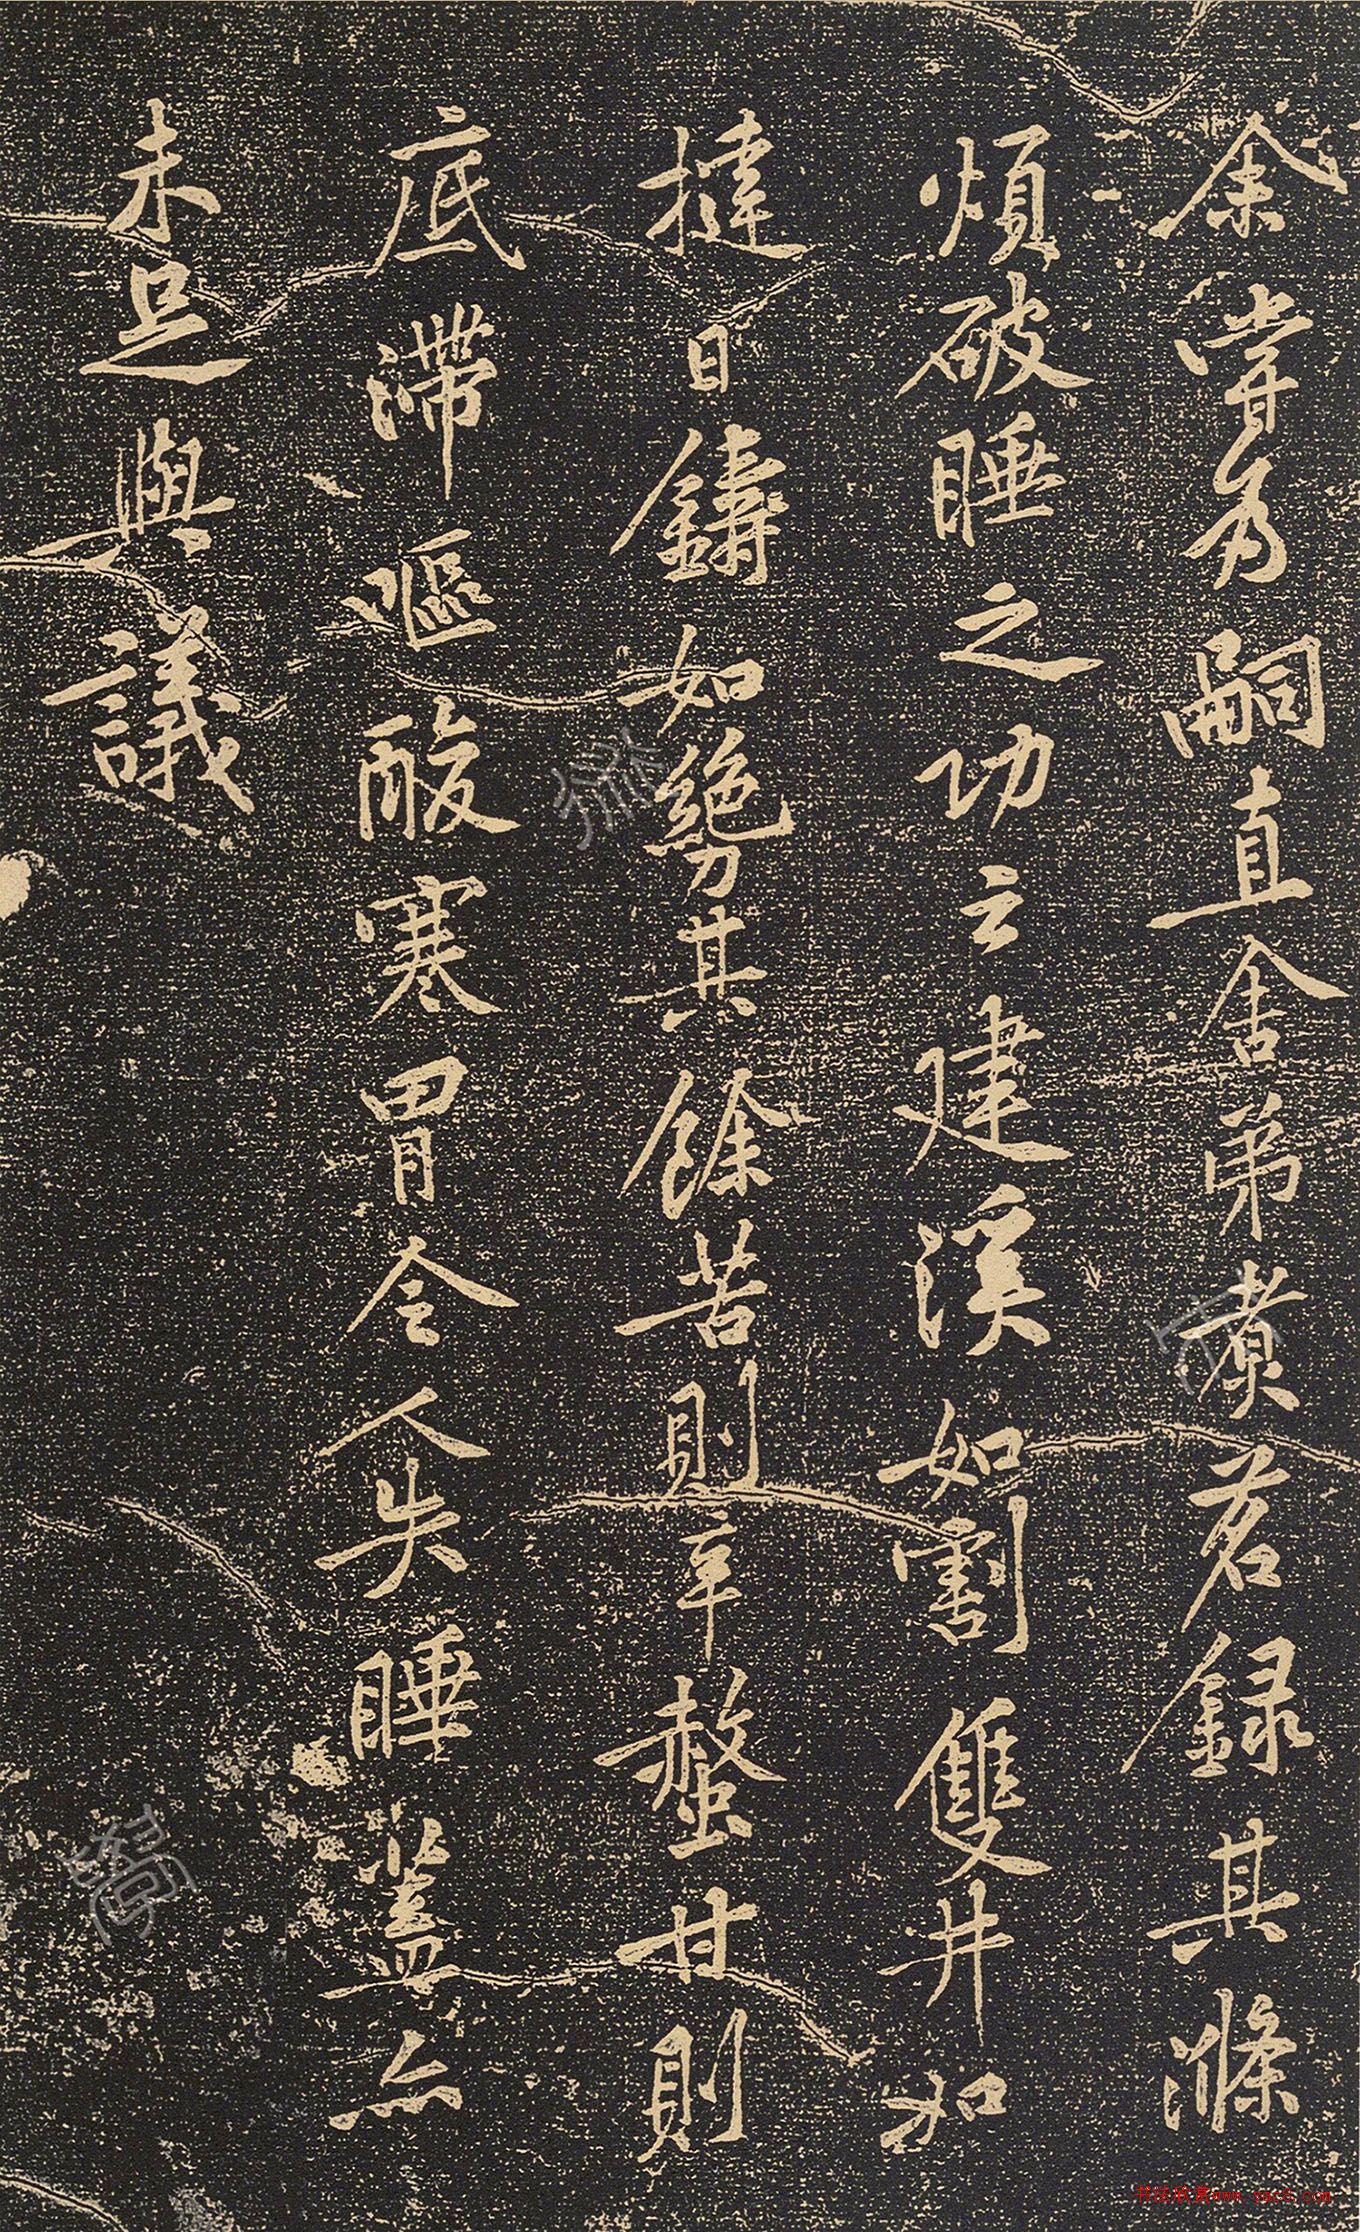 余嘗為嗣直舍弟煮茗錄其滌
煩破睡之功云建溪如割雙井如
撻日鑄如其餘苦則辛螫甘則
底滯嘔酸寒胃令人失睡蓋亦
未足與議
书法欣赏www.yac8.com